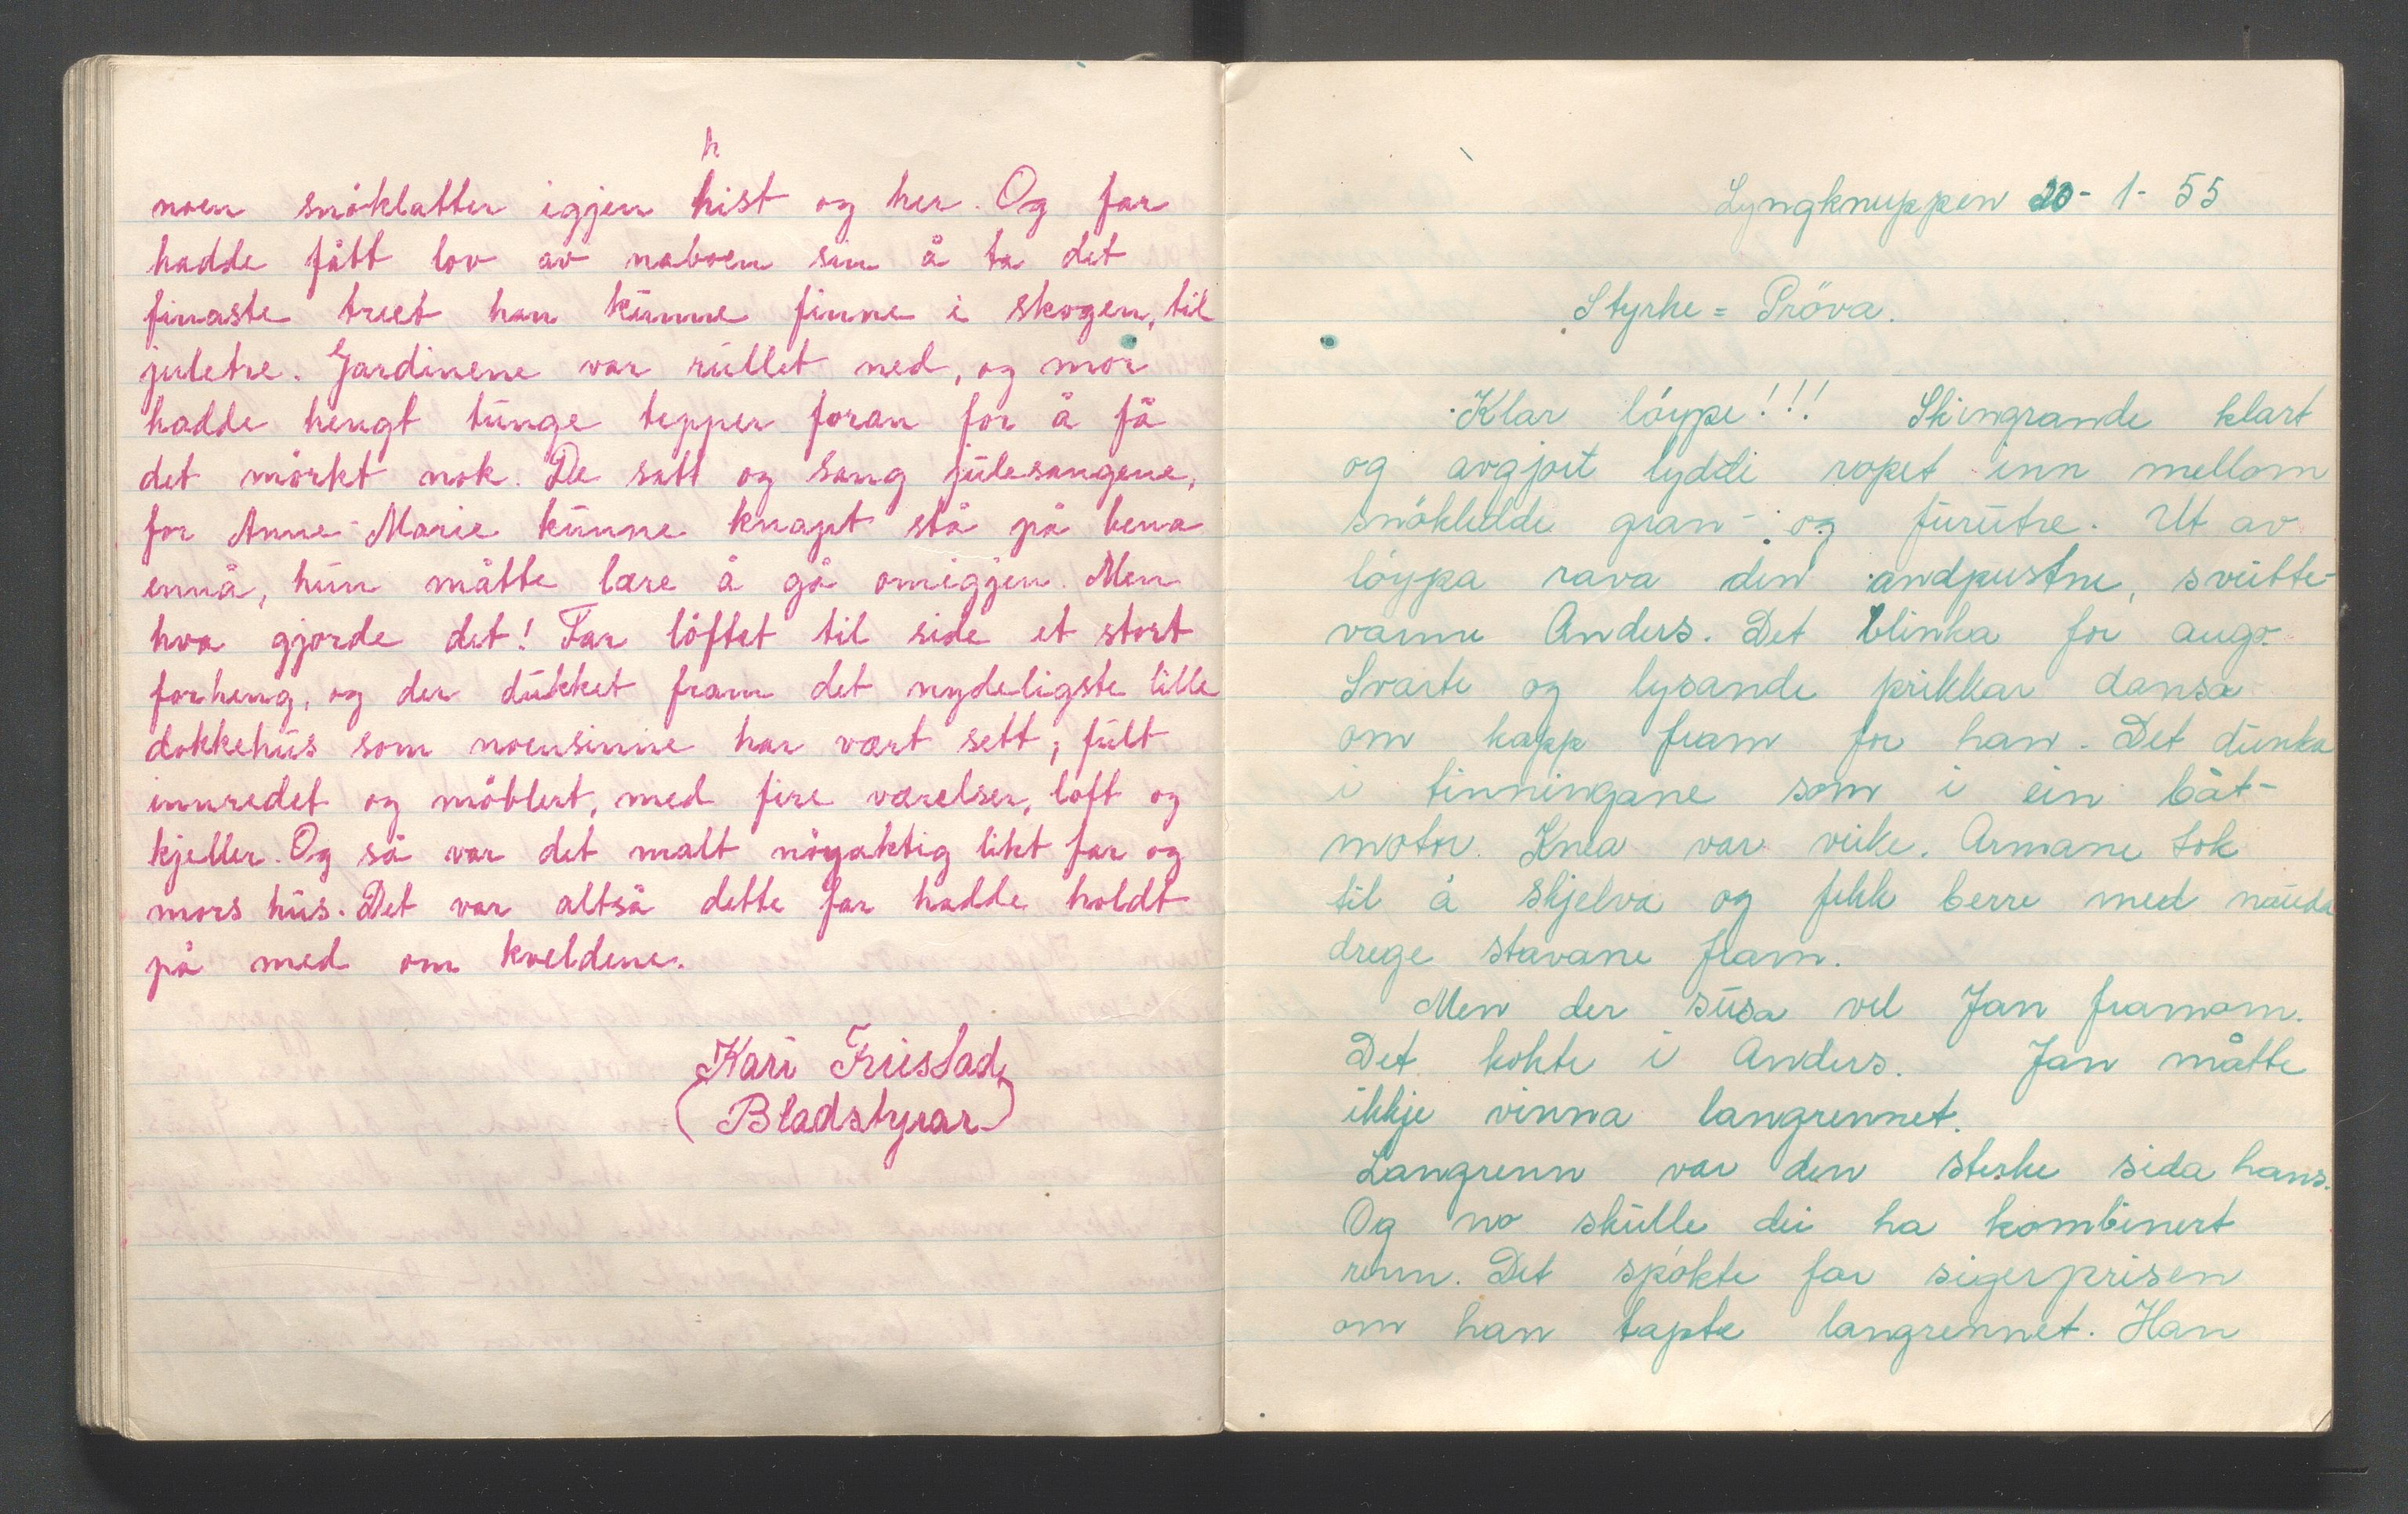 noen snöklatter igjen hist og her. Og far
hadde fått lov av naboen sin å ta det
finaste treet han kunne finne i skogen, til
juletre. Gardinene var rullet ned, og mor
hadde hengt tunge tepper foran for å få
det mörkt nok. De satt og sang julesangene,
for Anne-Marie kunne knapt stå på bena
ennå, hun måtte lære å gå omigjen. Men
hva gjorde det! Far löftet til side et stort
forheng, og der dukket fram det nydeligste lille
dokkehus som noensinne har vært sett, fult
innredet og möblert, med fire værelser, loft og
kjeller. Og så var det malt nöyaktig likt far og
mors hus. Det var altså dette far hadde holdt
på med om kveldene.
(Bladstyrar)
Lyngknuppen 20-1-55
Styrke = Pröva.
Klar löype!!! Skingrande klart
og avgjort lydde ropet inn mellom
snökledde gran- og furutre. Ut av
löypa rava den andpustne, sveitte-
varme Anders. Det blinka for augo.
Svarte og lysande prikkar dansa
om kapp fram for han. Det dunka
i tinningane som i ein båt-
motor. Knea var veike. Armane tok
til å skjelva og fekk berre med nauda
drege stavane fram.
Men der susa vel Jan framom.
Det kokte i Anders. Jan måtte
ikkje vinna langrennet.
Langrenn var den sterke sida hans.
Og no skulle dei ha kombinert
renn. Det spökte for sigerprisen
om han tapte langrennet. Han